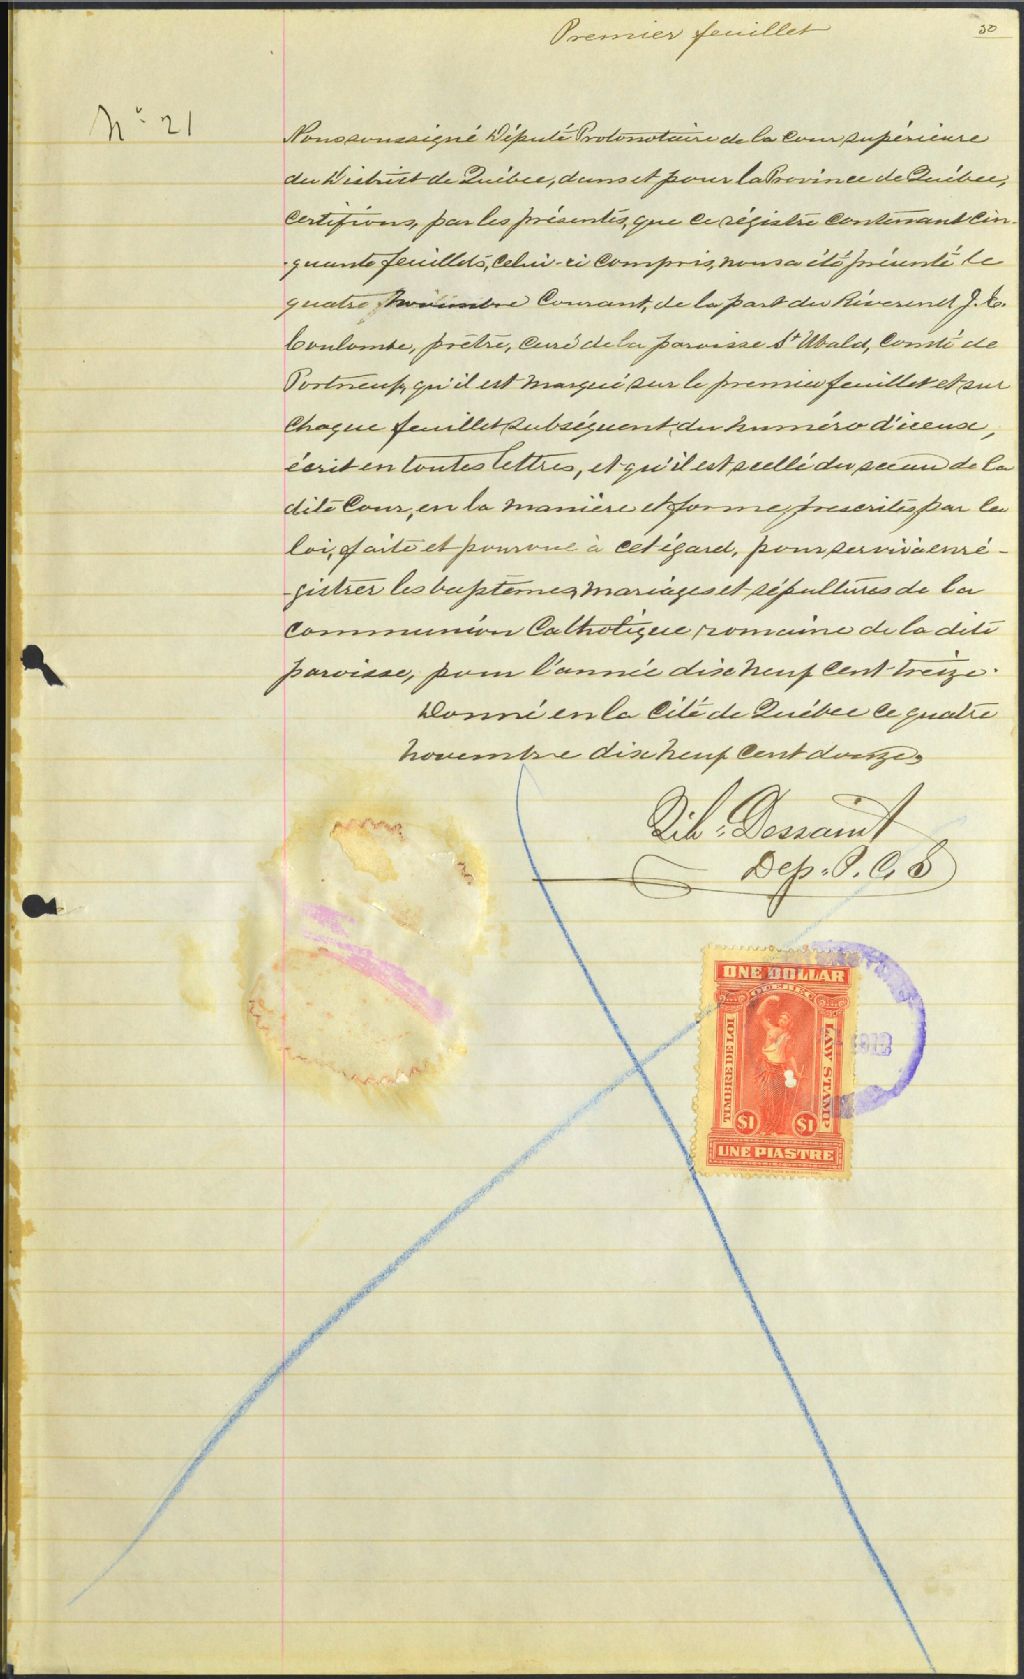 Premier feuillet
50
No 21
Nous soussigné Député Protonotaire de la Cour supérieure
du District de Québec, dans et pour la Province de Québec,
certifions, par les présentes, que ce régistre contenant cin-
-quante feuillets, celui-ci compris, nous a été présenté le
quatre novembre courant, de la part du Révérend J. E.
Coulombe, prêtre, curé de la paroisse St Ubald, Comté de
Portneuf, qu'il est marqué sur le premier feuillet et sur
chaque feuillet subséquent, du numéro d'iceux,
écrit en toutes lettres, et qu'il est scellé du sceau de la
dite Cour, en la manière et forme prescrites par la
loi, faite et pourvue à cet égard, pour servir à enré-
-gistrer les baptêmes, mariages et sépultures de la
communion Catholique romaine de la dite
paroisse, pour l'année dix neuf cent treize.
Donné en la Cité de Québec ce quatre
novembre dix neuf cent douze,
Dessaint
Dep. P. C. S
ONE DOLLAR
QUEBEC
TIMBRE DE LOI
LAW STAMP
$1
$1
UNE PIASTRE